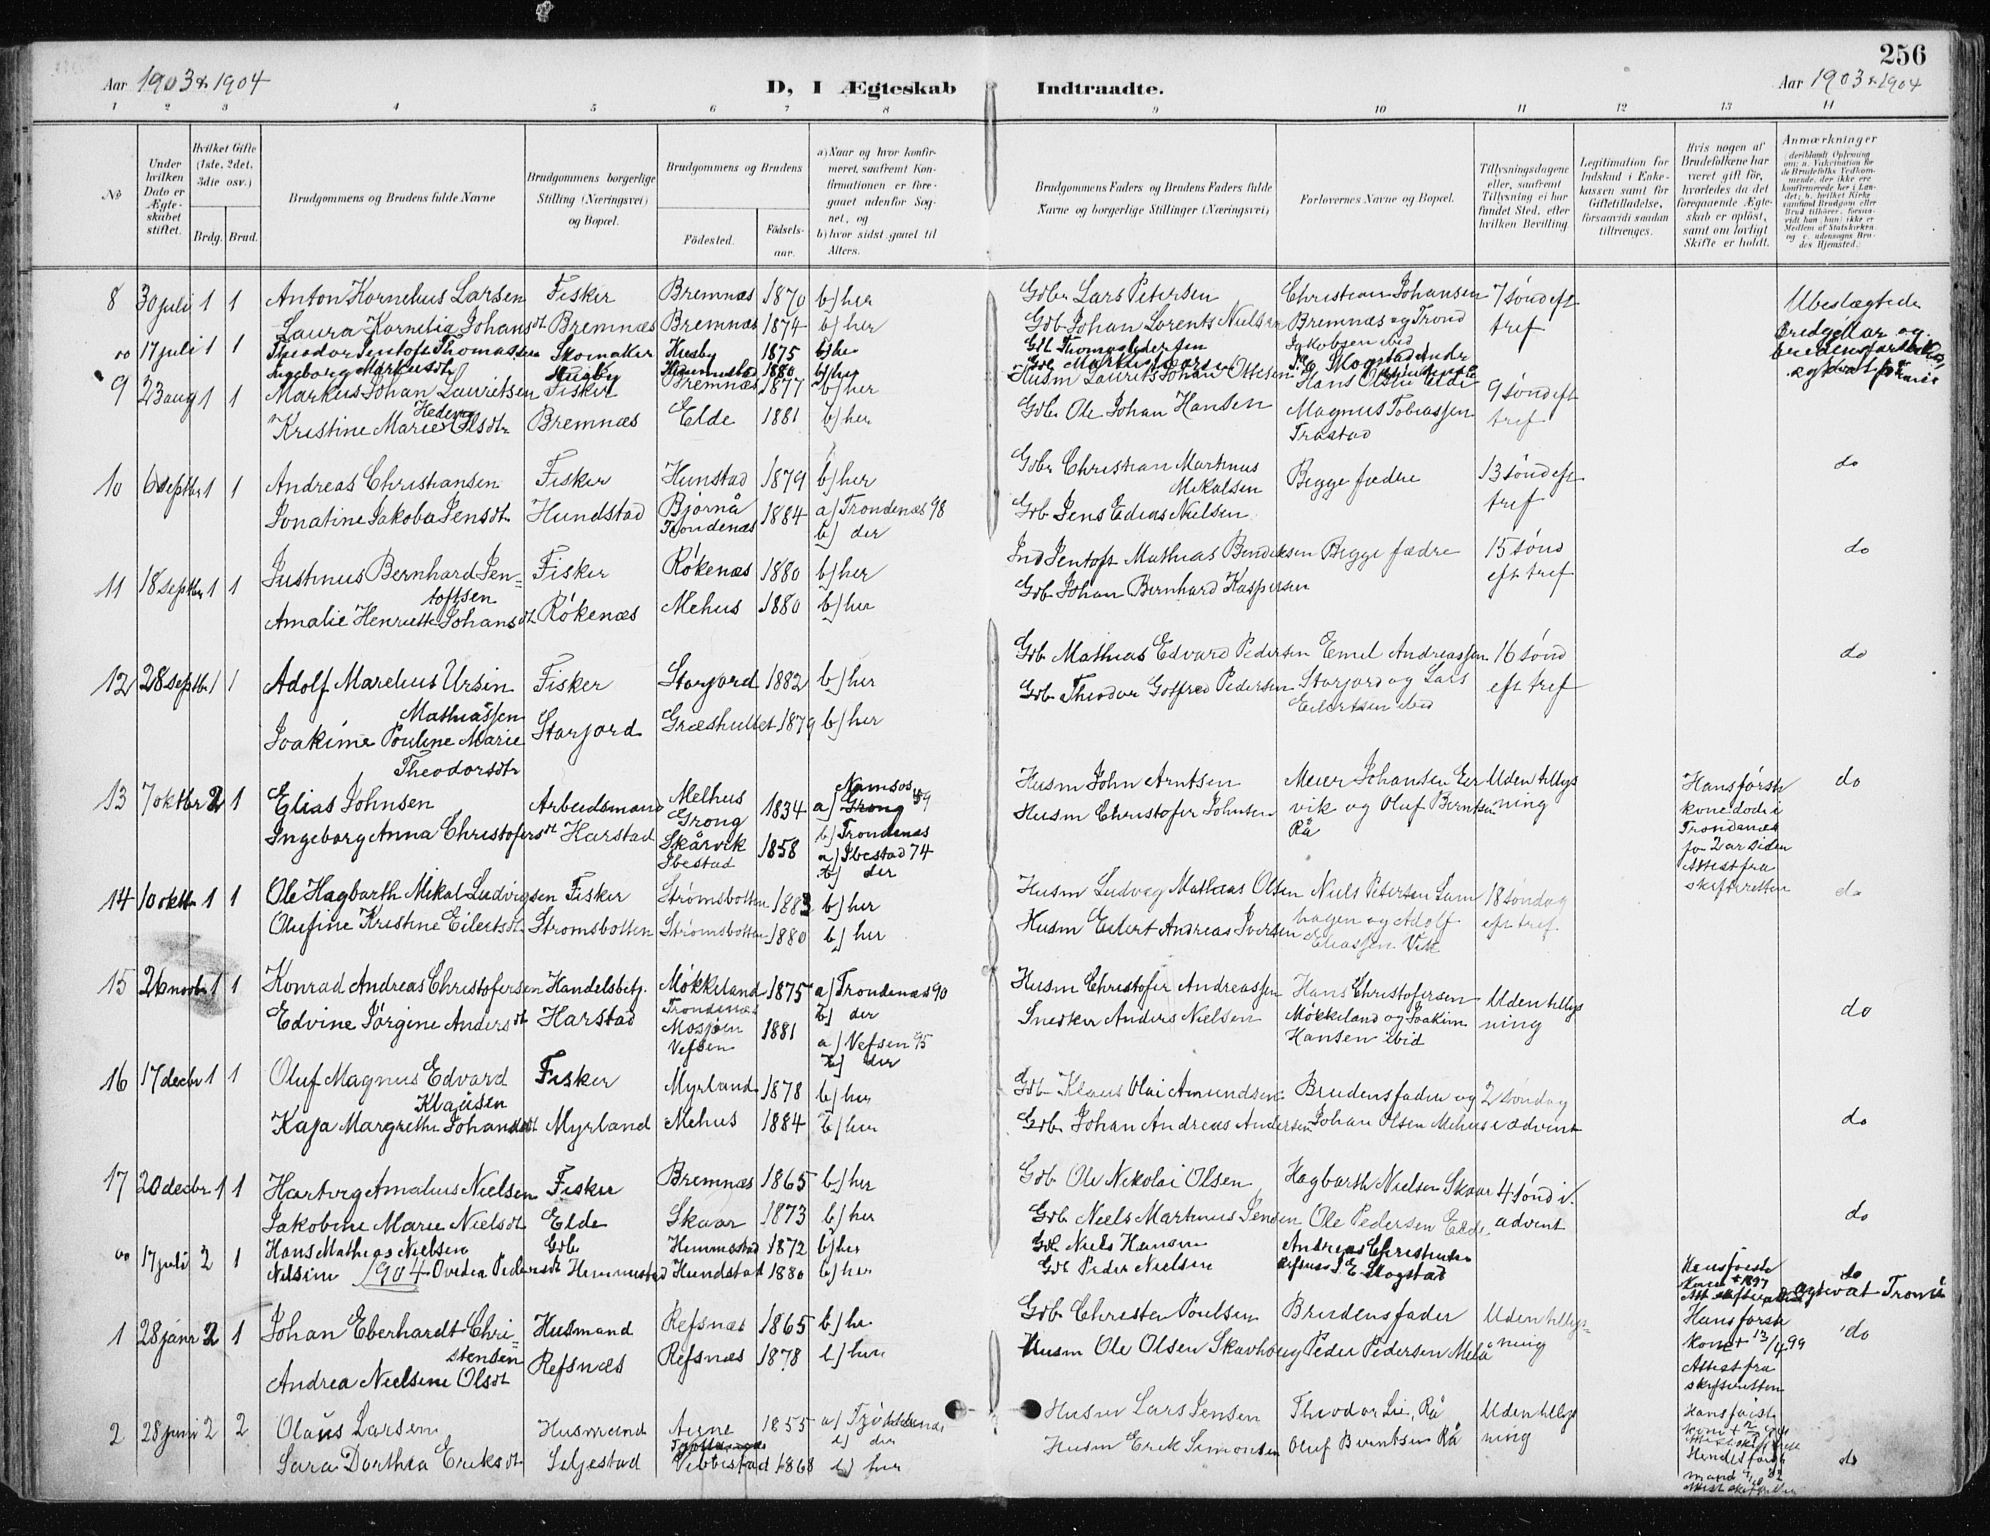 256
Aar 1903 & 1904
D, I Ægteskab Indtraadte.
Aar 1903 & 1904
1 2 3 4 5 6 7 8 9 10 11 12 13 14
No
Under hvilken Dato er Ægteskabet stiftet.
Hvilket Gifte (1ste, 2det, 3die osv.)
Brdg. Brud.
Brudgommens og Brudens fulde Navne
Brudgommens borgerlige Stilling (Næringsvei) og Bopæl.
Brudgommens og Brudens
Födested. Födsels-aar.
a) Naar og hvor konfirmeret, saafremt Konfirmationen er foregaaet udenfor Sognet, og
b) hvor sidst gaaet til Alters.
Brudgommens Faders og Brudens Faders fulde Navne og borgerlige Stillinger (Næringsvei)
Forlovernes Navne og Bopæl.
Tillysningsdagene eller, saafremt Tillysning ei har fundet Sted, efter hvilken Bevilling
Legitimation for Indskud i Enkekassen samt for Giftetilladelse, forsaavidt saadan tiltrænges.
Hvis nogen af Brudefolkene har været gift før, hvorledes da det foregaaende Ægteskab er opløst, samt om lovligt Skifte er holdt.
Anmærkninger
8 30 juli 1 1 Anton Kornelius Larsen Fisker Bremnæs 1870 b) her Gdbr Lars Petersen Christian Johansen 7 sönd eft Ubeslægtede
Laura Kornelia Johansdt Bremnæs Bremnæs 1874 b) her Gdb Johan Lorents Nielsen Bremnæs og Trond tref
17 juli 1 1 Theodor Jentoft Thomassen Skomaker Husby 1875 b) her Gdb Thomas Pedersen Jakobsen ibid
Ingeborg Markusdt Husby Hemmestad 1880 b) her
9 23 aug 1 1 Markus Johan Lauritsen Fisker Bremnæs 1877 b) her Husm Laurits Johan Ottesen Hans Olsen Elde 9 sönd eft
Hedevig
Kristine Marie Olsdtr Bremnæs Elde 1881 b) her Gdbr Ole Johan Hansen Magnus Tobiassen tref
Trastad
10 6 septbr 1 1 Andreas Christiansen Fisker Hunstad 1879 b) her Gdbr Christian Martinus Begge fædre 13 sönd eft do
Mikalsen
Jonatine Jakoba Jensdt Hundstad Bjørnå 1884 a) Trondenæs 98 Gdb Jens Edias Nielsen tref
Trondenæs b) der
11 18 septbr 1 1 Justinus Bernhard Jen= Fisker Rökenæs 1880 b) her Ind Jentoft Mathias Bendiksen Begge fædre 15 sönd do
toftsen
Amalie Henriette Johansdt Rökenæs Mehus 1880 b) her Gdb Johan Bernhard Kaspersen eft tref
12 28 septbr 1 1 Adolf Marelius Ursin Fisker Storjord 1882 b) her Gdb Mathias Edvard Pedersen Emel Andreassen 16 sönd do
Mathiassen
Joakime Pouline Marie Storjord Græshultet 1879 b) her Gdb Theodor Gotfred Pedersen Storjord og Lars eft tref
Theodorsdtr Eilertsen ibid
13 7 oktbr 2 1 Elias Johnsen Arbeidsmand Melhus 1834 a) Namsos 59 Husm John Arntsen Meier Johansen Er Uden tillys Hans første do
Grong b) Trondenæs vik og Oluf Berntsen ning kone dode i
Ingeborg Anna Christofersdt Harstad Skårvik 1858 a) Ibestad 74 Husm Christofer Johnsen Rå Trondenæs
Ibestad b) der for 2 ar siden
Attest fra
skifteretten
14 10 oktbr 1 1 Ole Hagbarth Mikal Ludvigsen Fisker Strömsbotten 1883 b) her Husm Ludvig Mathias Olsen Niels Petersen Sam 18 söndag do
Olufine Kristine Eilertsdt Strömsbotten Strömsbotten 1880 b) her Husm Eilert Andreas Iversen hagen og Adolf eft tref
Eliassen Vik
15 26 novbr 1 1 Konrad Andreas Christofersen Handelsbetj. Mökkeland 1875 a) Trondenæs 90 Husm Christofer Andreassen Hans Christofersen Uden tillys do
Trondenæs b) der
Edvine Jörgine Andersdt Harstad Mosjøen 1881 a) Vefsen 95 Snedker Anders Nielsen Mökkeland og Joakim ning
Vefsen b) der Hansen ibid
16 17 decbr 1 1 Oluf Magnus Edvard Fisker Myrland 1878 b) her Gdb Klaus Olai Amundsen Brudens fader og 2 söndag
Klausen
Kaja Margrethe Johansdt Myrland Mehus 1884 b) her Gdb Johan Andreas Andersen Johan Olsen Mehus i advent do
17 20 decbr 1 1 Hartvig Amalius Nielsen Fisker Bremnæs 1865 b) her Gdb Ole Nikolai Olsen Hagbarth Nielsen Skaar 4 sönd i
Jakobine Marie Nielsdt Elde Skaar 1873 b) her Gdb Niels Martinus Jensen Ole Pedersen Elde advent do
17 juli 2 1 Hans Mathias Nielsen Gdb Hemmestad 1872 b) her Gdb Niels Hansen Andreas Christensen Hans første do
Nelsine Ovedia Pedersdt Hemmestad Hundstad 1880 b) her Gdb Peder Nielsen Refsnæs I. E. Slogstad kone + 1897
1904
1 28 janr 2 1 Johan Eberhardt Chri= Husmand Refsnæs 1865 b) her Gdb Christen Poulsen Brudens fader Uden tillys= Hans første do
stensen kone + 13/4 99
Andrea Nielsine Olsdt Refsnæs Refsnæs 1878 b) her Husm Ole Olsen Skavhoug Peder Pedersen Melå ning Attest fra
skifteretten
2 28 juni 2 2 Olaus Larsen Husmand 1855 a) Husm Lars Jensen Theodor Lie, Rå Uden tillys Hans første
b) der
Sara Dorthea Eriksdt Seljestad Vebbestad 1868 b) her Husm Erik Simonsen Oluf Berntsen Rå ning Hendes første do
mand